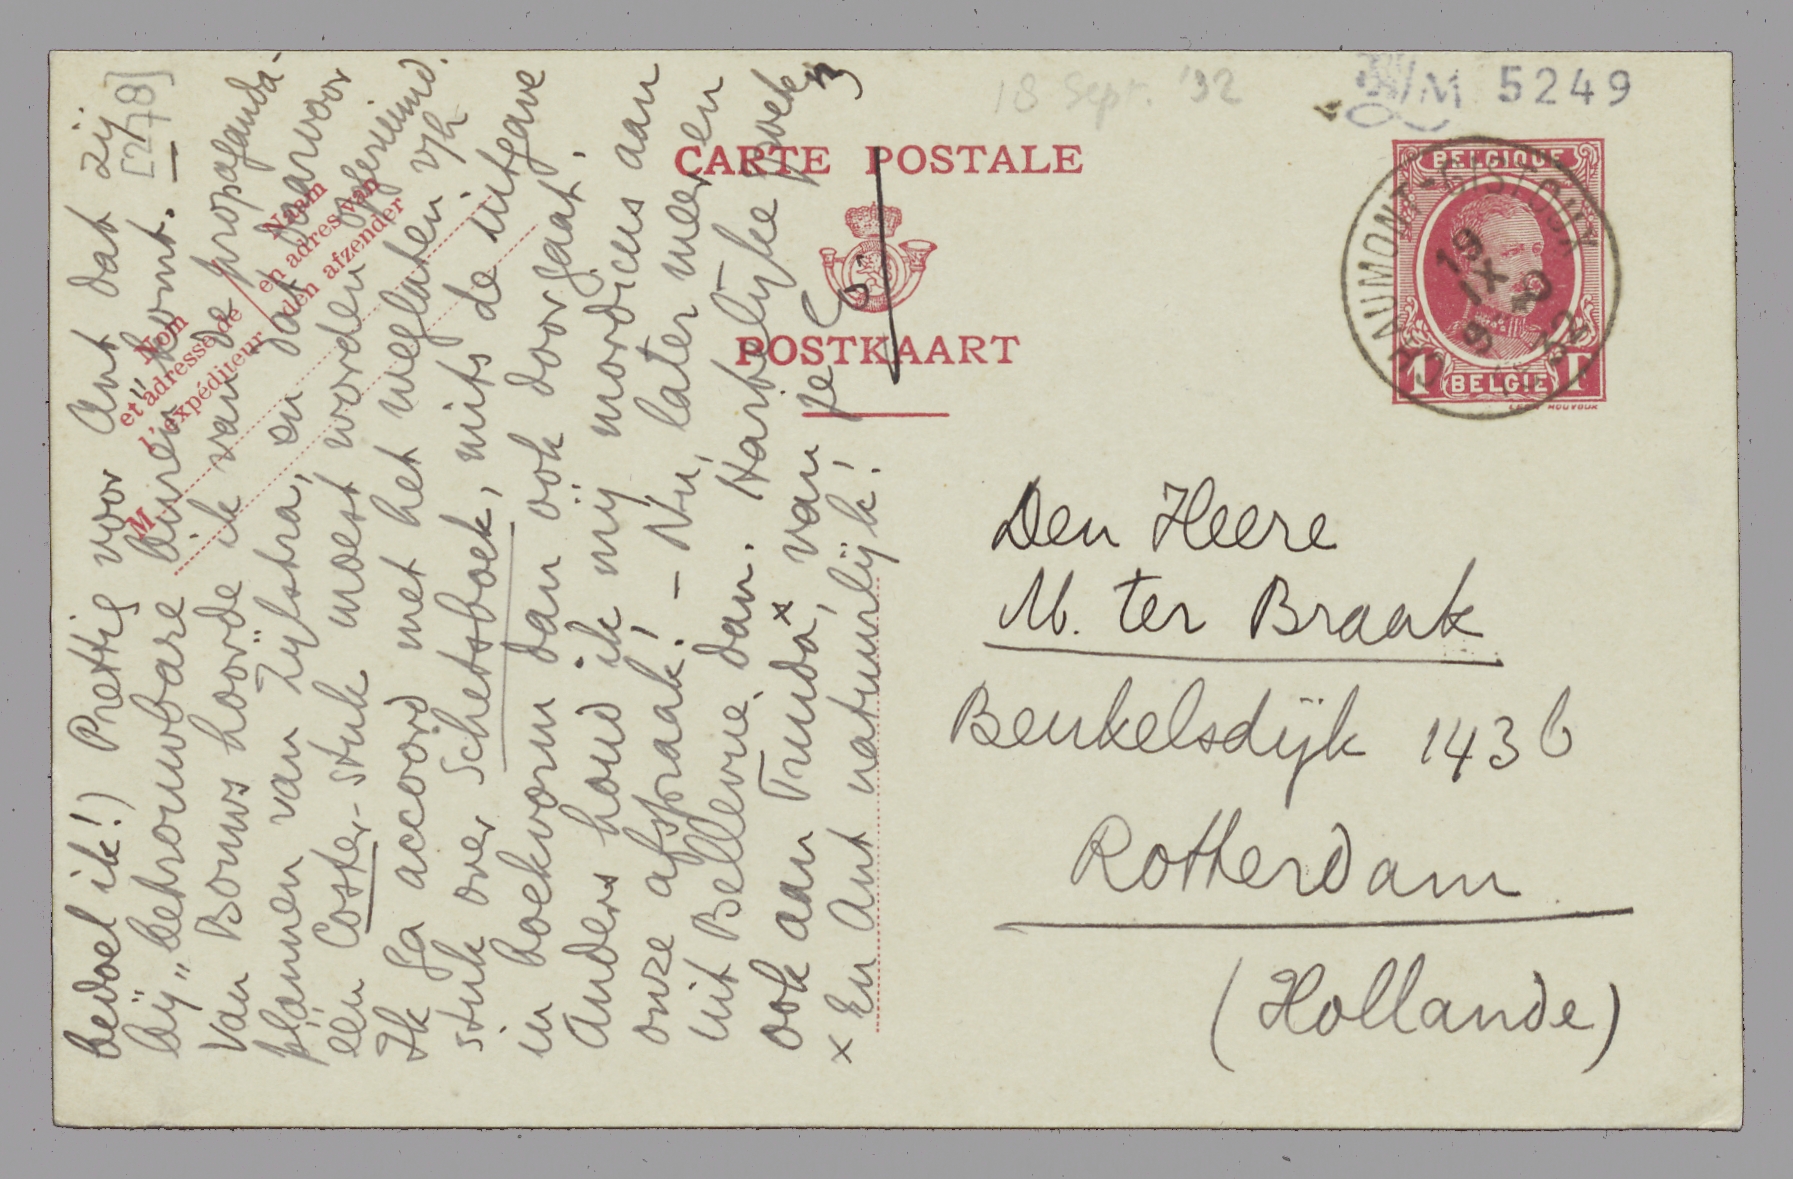 18 Sept. '32
M 5249
CARTE POSTALE
POSTKAART
BELGIQUE
CHAUMONT-GISTOUX
19
IX
1F BELGIE 1F
[278]
Nom
et adresse de
l'expéditeur
Naam
en adres van
den afzender
M
bedoel ik!) Prettig voor Ant dat zij
bij "betrouwbare buren" komt. —
Van Bouws hoorde ik van de propaganda-
plannen van Zijlstra, en dat daarvoor
een Coster-stuk moest worden opgeruimd.
Ik ga accoord met het weglaten v/h
stuk over Schetsboek, mits de uitgave
in boekvorm dan ook doorgaat.
Anders houd ik mij mordicus aan
onze afspraak! — Nu, later meer en
uit Bellevue dan. Hartelijke groeten
ook aan Truida x, van je E.
x En Ant natuurlijk!
Den Heere
M. ter Braak
Beukelsdijk 143 b
Rotterdam
(Hollande)